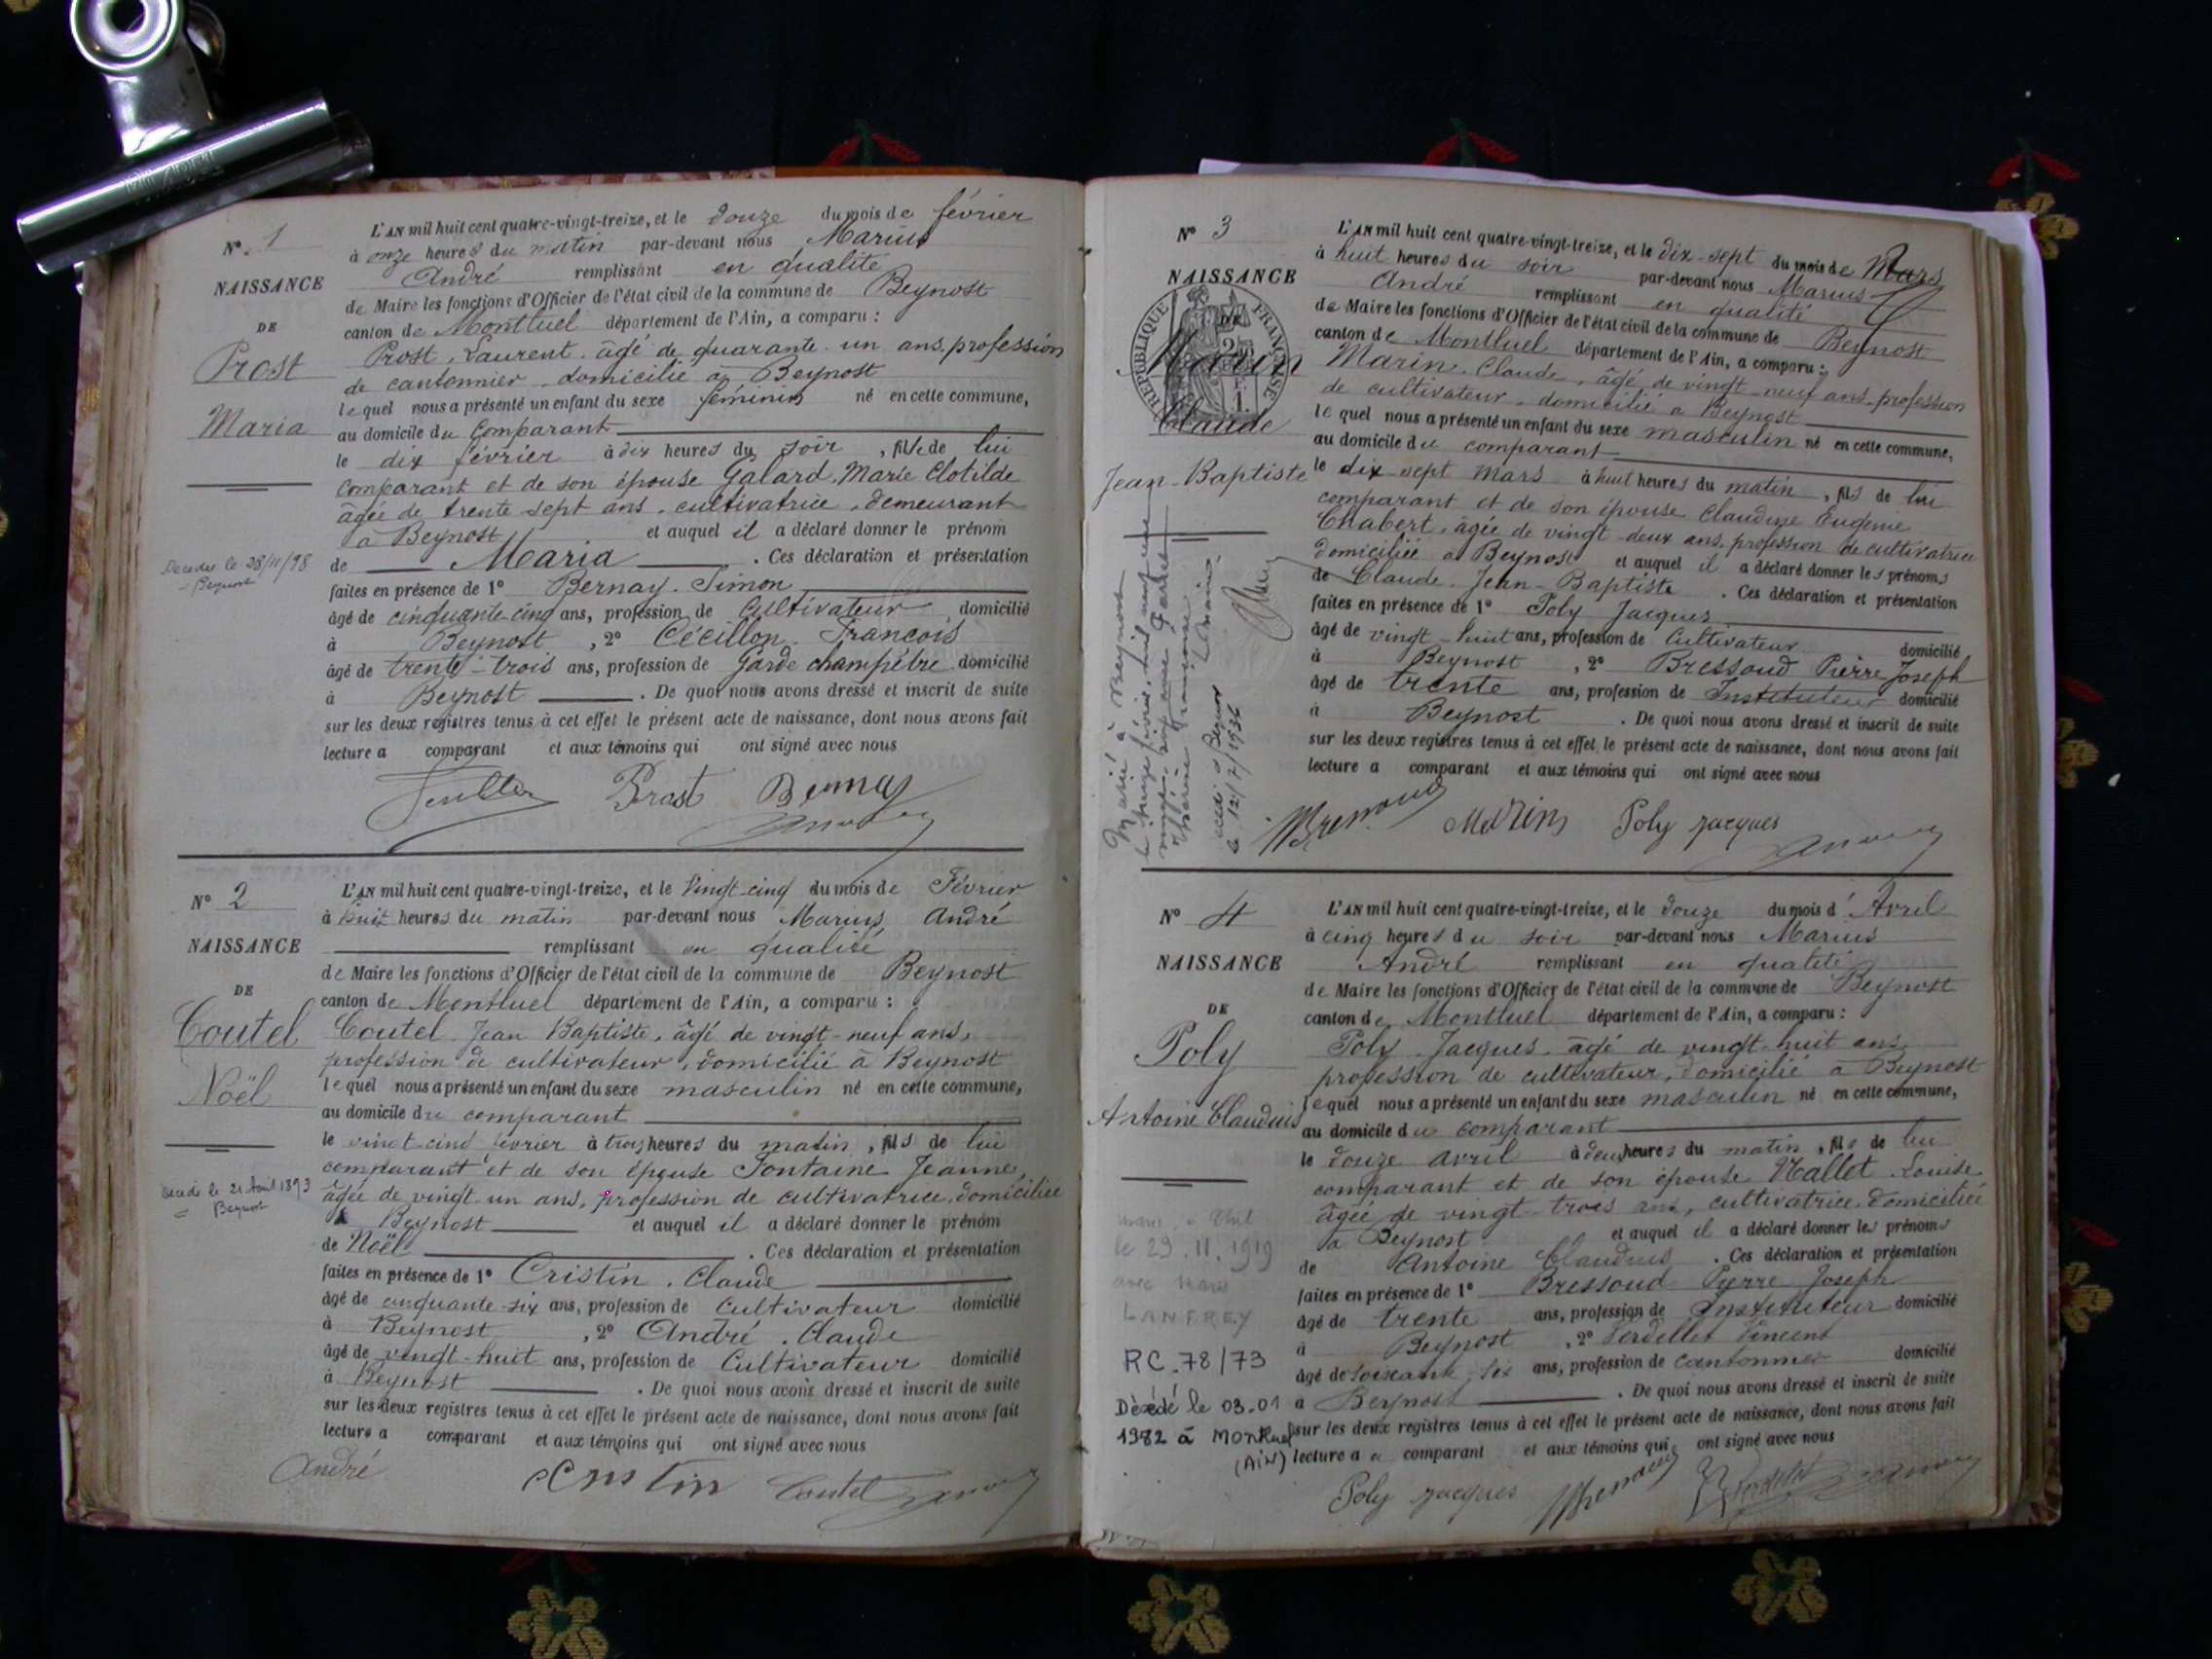 N° 1
NAISSANCE
DE
Prost
Maria
Décédée le 28/11/98
= Beynost
L'AN mil huit cent quatre-vingt-treize, et le douze du mois de février
à onze heures du matin par-devant nous Marius
André remplissant en qualité
de Maire les fonctions d'Officier de l'état civil de la commune de Beynost
canton de Montluel département de l'Ain, a comparu :
Prost, Laurent âgé de quarante un ans, profession
de cantonnier domicilié à Beynost
lequel nous a présenté un enfant du sexe féminin né en cette commune,
au domicile du comparant
le dix février à dix heures du soir, fille de lui
comparant et de son épouse Galard, Marie Clotilde
âgée de trente sept ans, cultivatrice, demeurant
à Beynost et auquel il a déclaré donner le prénom
de Maria. Ces déclaration et présentation
faites en présence de 1° Bernay Simon
âgé de cinquante cinq ans, profession de Cultivateur domicilié
à Beynost, 2° Cécillon, François
âgé de trente-trois ans, profession de Garde champêtre domicilié
à Beynost. De quoi nous avons dressé et inscrit de suite
sur les deux registres tenus à cet effet le présent acte de naissance, dont nous avons fait
lecture a comparant et aux témoins qui ont signé avec nous
Prost Bernay
N° 2
NAISSANCE
DE
Coutel
Noël
décédé le 21 Août 1893
= Beynost
L'AN mil huit cent quatre-vingt-treize, et le Vingt-cinq du mois de Février
à huit heures du matin par-devant nous Marius André
remplissant en qualité
de Maire les fonctions d'Officier de l'état civil de la commune de Beynost
canton de Montluel département de l'Ain, a comparu :
Coutel Jean Baptiste, âgé de vingt-neuf ans,
profession de cultivateur, domicilié à Beynost
lequel nous a présenté un enfant du sexe masculin né en cette commune,
au domicile du comparant
le vingt-cinq février à trois heures du matin, fils de lui
comparant et de son épouse Fontaine Jeanne,
âgée de vingt-un ans, profession de cultivatrice, domiciliée
à Beynost et auquel il a déclaré donner le prénom
de Noël. Ces déclaration et présentation
faites en présence de 1° Cristin, Claude
âgé de cinquante-six ans, profession de Cultivateur domicilié
à Beynost, 2° André, Claude
âgé de vingt-huit ans, profession de Cultivateur domicilié
à Beynost. De quoi nous avons dressé et inscrit de suite
sur les deux registres tenus à cet effet le présent acte de naissance, dont nous avons fait
lecture a comparant et aux témoins qui ont signé avec nous
André Cristin Coutel
N° 3
NAISSANCE
DE
REPUBLIQUE FRANÇAISE
Marin
Claude
Jean-Baptiste
Marié à Beynost
Décédé à Beynost
le 12/7/1936
L'AN mil huit cent quatre-vingt-treize, et le dix-sept du mois de Mars
à huit heures du soir par-devant nous Marius
André remplissant en qualité
de Maire les fonctions d'Officier de l'état civil de la commune de Beynost
canton de Montluel département de l'Ain, a comparu :
Marin, Claude, âgé de vingt-neuf ans, profession
de cultivateur, domicilié à Beynost
lequel nous a présenté un enfant du sexe masculin né en cette commune,
au domicile du comparant
le dix-sept mars à huit heures du matin, fils de lui
comparant et de son épouse Claudine Eugénie
Chabert, âgée de vingt-deux ans, profession de cultivatrice
domiciliée à Beynost et auquel il a déclaré donner les prénoms
de Claude Jean-Baptiste. Ces déclaration et présentation
faites en présence de 1° Poly Jacques
âgé de vingt-huit ans, profession de Cultivateur domicilié
à Beynost, 2° Bressoud Pierre Joseph
âgé de trente ans, profession de Instituteur domicilié
à Beynost. De quoi nous avons dressé et inscrit de suite
sur les deux registres tenus à cet effet le présent acte de naissance, dont nous avons fait
lecture a comparant et aux témoins qui ont signé avec nous
Marin Poly Jacques
N° 4
NAISSANCE
DE
Poly
Antoine Claudius
le 29.11.1919
avec Marie
LANFREY
RC.78/73
Décédé le 03.01
1982 à Montluel
(AIN)
L'AN mil huit cent quatre-vingt-treize, et le douze du mois d' Avril
à cinq heures du soir par-devant nous Marius
André remplissant en qualité
de Maire les fonctions d'Officier de l'état civil de la commune de Beynost
canton de Montluel département de l'Ain, a comparu :
Poly, Jacques, âgé de vingt-huit ans
profession de cultivateur, domicilié à Beynost
lequel nous a présenté un enfant du sexe masculin né en cette commune,
au domicile du comparant
le douze avril à deux heures du matin, fils de lui
comparant et de son épouse Mallet Louise
âgée de vingt-trois ans, cultivatrice, domiciliée
à Beynost et auquel il a déclaré donner les prénoms
de Antoine Claudius. Ces déclaration et présentation
faites en présence de 1° Bressoud Pierre Joseph
âgé de trente ans, profession de Instituteur domicilié
à Beynost, 2° Verdellet Vincent
âgé de soixante-six ans, profession de cantonnier domicilié
à Beynost. De quoi nous avons dressé et inscrit de suite
sur les deux registres tenus à cet effet le présent acte de naissance, dont nous avons fait
lecture a u comparant et aux témoins qui ont signé avec nous
Poly Jacques